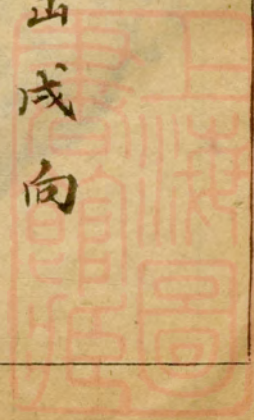 山戌向
上海圖
書館藏